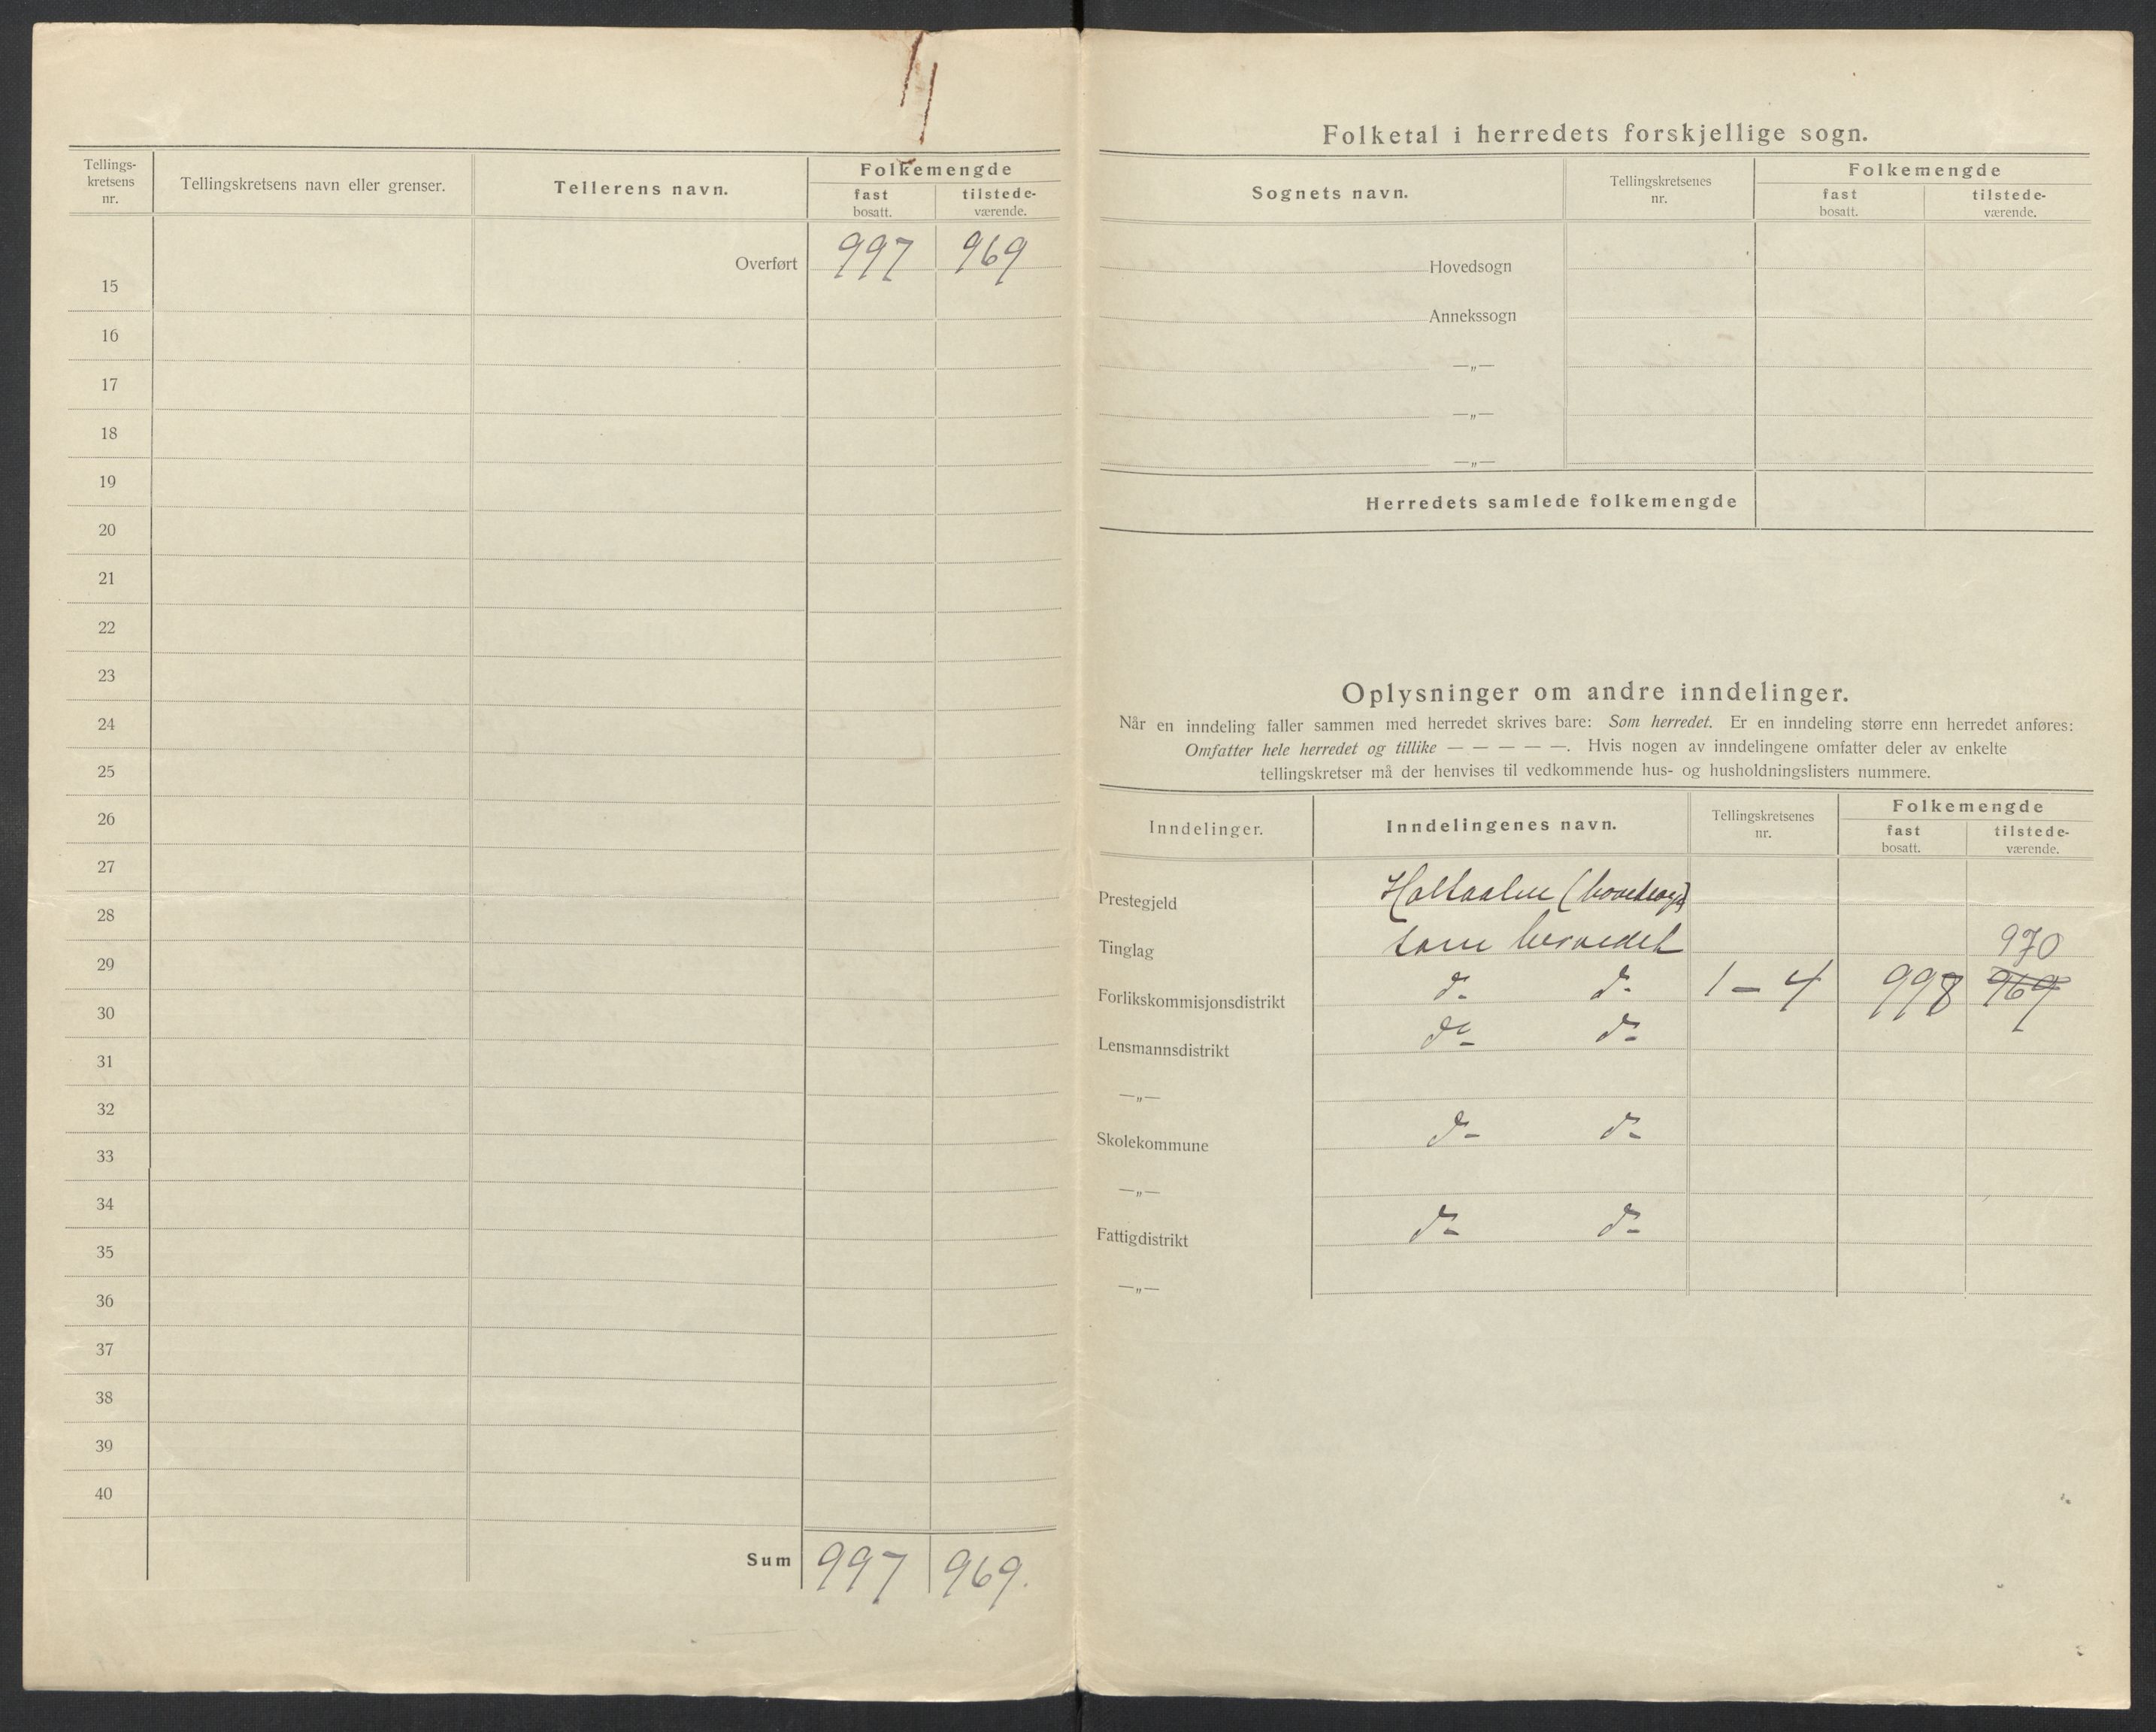 Tellings-
kretsens
nr.
Tellingskretsens navn eller grenser.
Tellerens navn.
Folkemengde
fast
bosatt.
tilstede-
værende.
Overført 997 969
15
16
17
18
19
20
21
22
23
24
25
26
27
28
29
30
31
32
33
34
35
36
37
38
39
40
Sum 997 969.
Folketal i herredets forskjellige sogn.
Sognets navn.
Tellingskretsenes
nr.
Folkemengde
fast
bosatt.
tilstede-
værende.
Hovedsogn
Annekssogn
—„—
—„—
—„—
Herredets samlede folkemengde
Oplysninger om andre inndelinger.
Når en inndeling faller sammen med herredet skrives bare: Som herredet. Er en inndeling større enn herredet anføres:
Omfatter hele herredet og tillike — — — — —. Hvis nogen av inndelingene omfatter deler av enkelte
tellingskretser må der henvises til vedkommende hus- og husholdningslisters nummere.
Inndelinger.
Inndelingenes navn.
Tellingskretsenes
nr.
Folkemengde
fast
bosatt.
tilstede-
værende.
Prestegjeld Holtaalen (hovedsogn)
Tinglag som herredet 970
Forlikskommisjonsdistrikt d- d- 1-4 998 969
Lensmannsdistrikt do- d-
—„—
Skolekommune d- d-
—„—
Fattigdistrikt d- d-
—„—